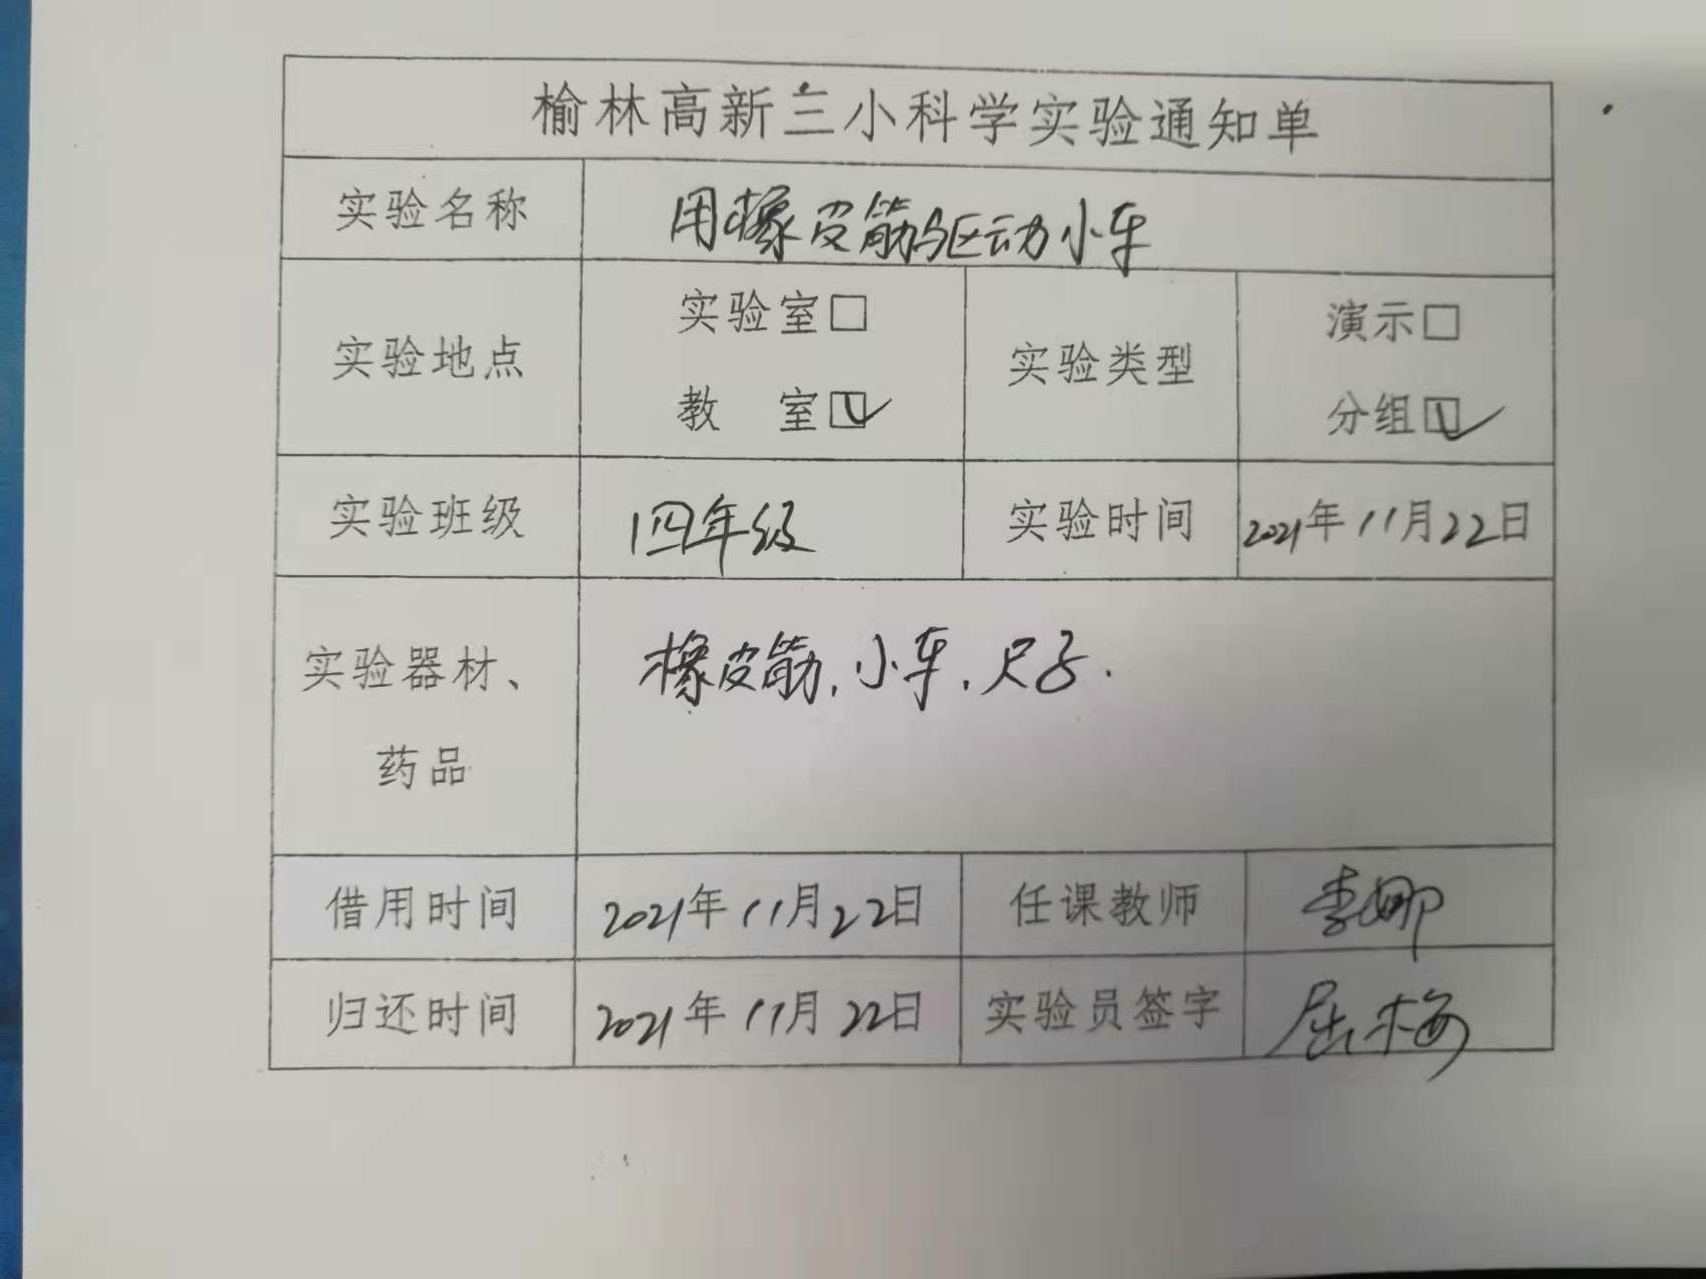 榆林高新三小科学实验通知单
实验名称 用橡皮筋驱动小车
实验地点 实验室□ 教 室☑ 实验类型 演示□ 分组☑
实验班级 四年级 实验时间 2021年11月22日
实验器材、药品 橡皮筋,小车,尺子.
借用时间 2021年11月22日 任课教师 李娜
归还时间 2021年11月22日 实验员签字 屈梅